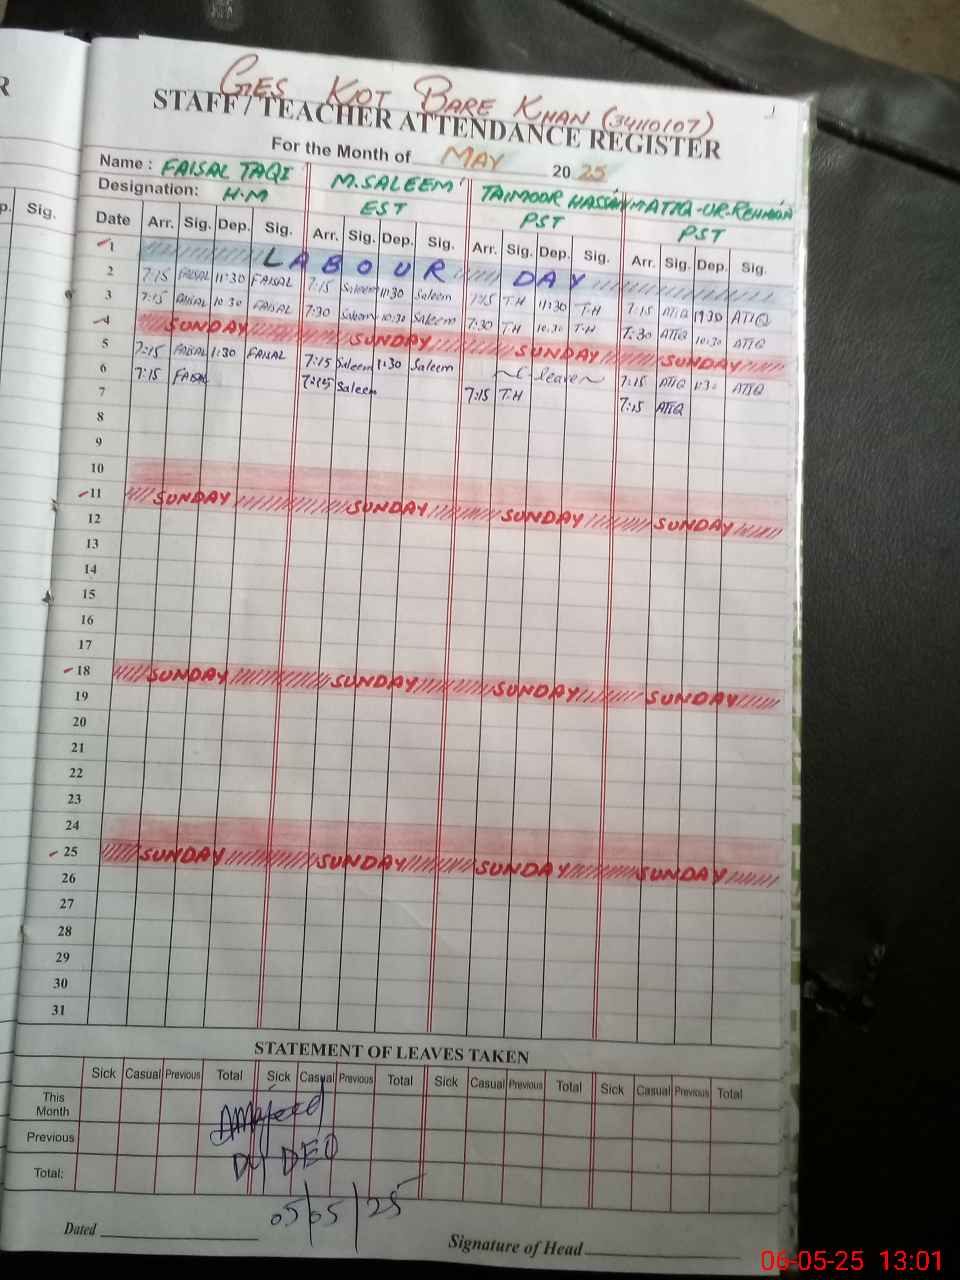 GES KOT BARE KHAN (34110107)
STAFF / TEACHER ATTENDANCE REGISTER
For the Month of MAY 2025
Name : FAISAL TAQI M.SALEEM TAIMOOR HASSAN M ATIQ-UR-REHMAN
Designation: H.M EST PST PST
R
p. Sig.
Date Arr. Sig. Dep. Sig. Arr. Sig. Dep. Sig. Arr. Sig. Dep. Sig. Arr. Sig. Dep. Sig.
1 LABOUR DAY
2 7:15 FAISAL 11:30 FAISAL 7:15 Saleem 11:30 Saleem 7:15 T.H 11:30 T.H 7:15 ATIQ ATIQ
3 7:15 FAISAL 10:30 FAISAL 7:30 Saleem 10:30 Saleem 7:30 T.H 10:30 T.H 7:30 ATIQ 10:30 ATIQ
4 SUNDAY SUNDAY SUNDAY SUNDAY
5 7:15 FAISAL 1:30 FAISAL 7:15 Saleem 1:30 Saleem ~C leave~ 7:15 ATIQ 1:30 ATIQ
6 7:15 FAISAL 7:15 Saleem 7:15 T.H 7:15 ATIQ
7
8
9
10
11 SUNDAY SUNDAY SUNDAY SUNDAY
12
13
14
15
16
17
18 SUNDAY SUNDAY SUNDAY SUNDAY
19
20
21
22
23
24
25 SUNDAY SUNDAY SUNDAY SUNDAY
26
27
28
29
30
31
STATEMENT OF LEAVES TAKEN
Sick Casual Previous Total Sick Casual Previous Total Sick Casual Previous Total Sick Casual Previous Total
This Month
Previous
Total:
Dy DEO
05/05/25
Dated
Signature of Head
06-05-25 13:01